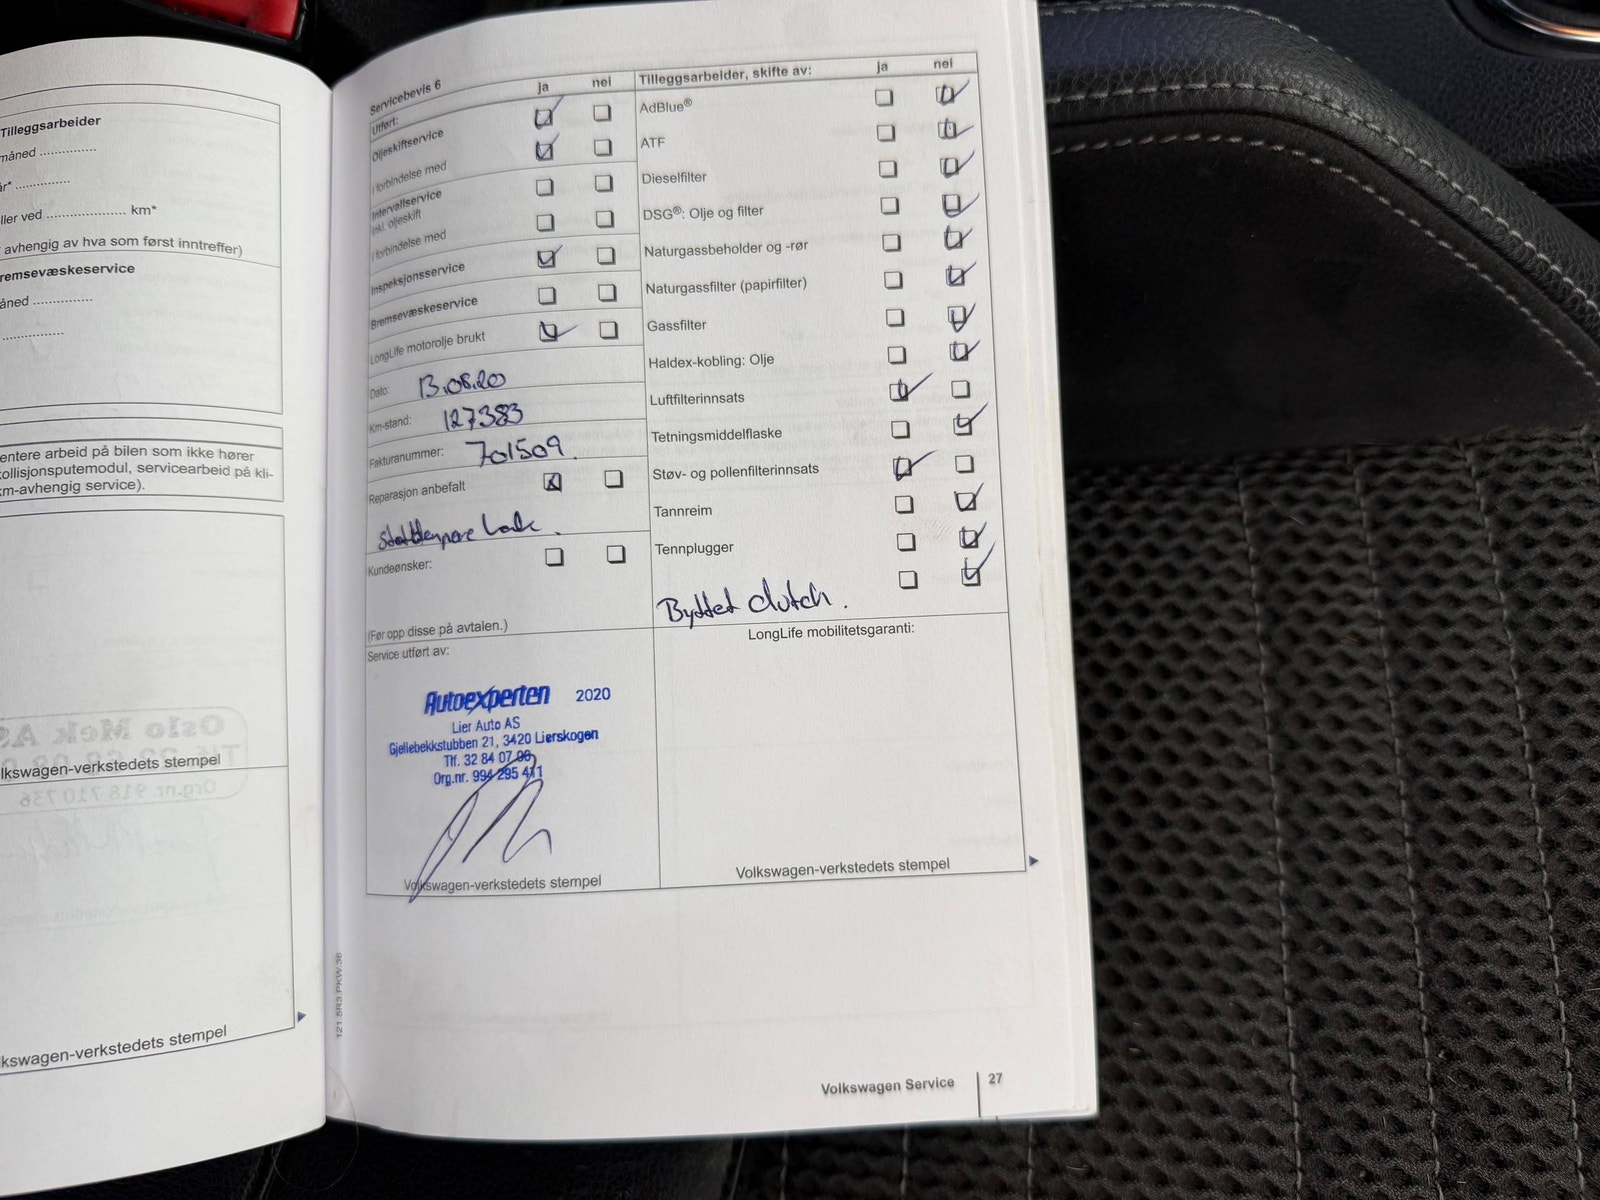 Tilleggsarbeider
måned ...............
år* ..............
ller ved ..................... km*
avhengig av hva som først inntreffer)
remsevæskeservice
åned ...............
................
entere arbeid på bilen som ikke hører
collisjonsputemodul, servicearbeid på kli-
km-avhengig service).
lkswagen-verkstedets stempel
kswagen-verkstedets stempel
Servicebevis 6 ja nei
Utført:
Oljeskiftservice
I forbindelse med
Intervallservice
inkl. oljeskift
I forbindelse med
Inspeksjonsservice
Bremsevæskeservice
LongLife motorolje brukt
Dato: 13.08.20
Km-stand: 127383
Fakturanummer: 701509.
Reparasjon anbefalt
Støtdempere bak.
Kundeønsker:
(Før opp disse på avtalen.)
Service utført av:
Autoexperten 2020
Lier Auto AS
Gjellebekkstubben 21, 3420 Lierskogen
Tlf. 32 84 07 00
Org.nr. 994 295 411
Volkswagen-verkstedets stempel
Tilleggsarbeider, skifte av: ja nei
AdBlue®
ATF
Dieselfilter
DSG®: Olje og filter
Naturgassbeholder og -rør
Naturgassfilter (papirfilter)
Gassfilter
Haldex-kobling: Olje
Luftfilterinnsats
Tetningsmiddelflaske
Støv- og pollenfilterinnsats
Tannreim
Tennplugger
Byttet clutch.
LongLife mobilitetsgaranti:
Volkswagen-verkstedets stempel
121.5R3.PKW.36
Volkswagen Service 27